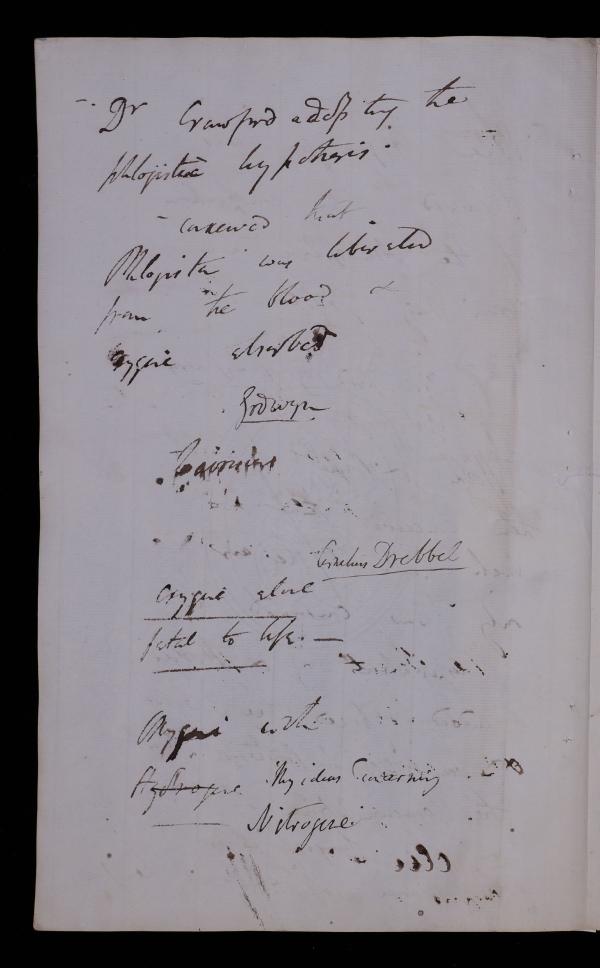 Dr Crawford adopting the
phlogistic hypothesis.
- conceived that
Phlogiston was liberated
from in the blood &
oxygene absorbed
Godwyn
Cornelius Drebbel
oxygene alone
fatal to life. —
Oxygene with
Hydrogene My ideas concerning
Nitrogene